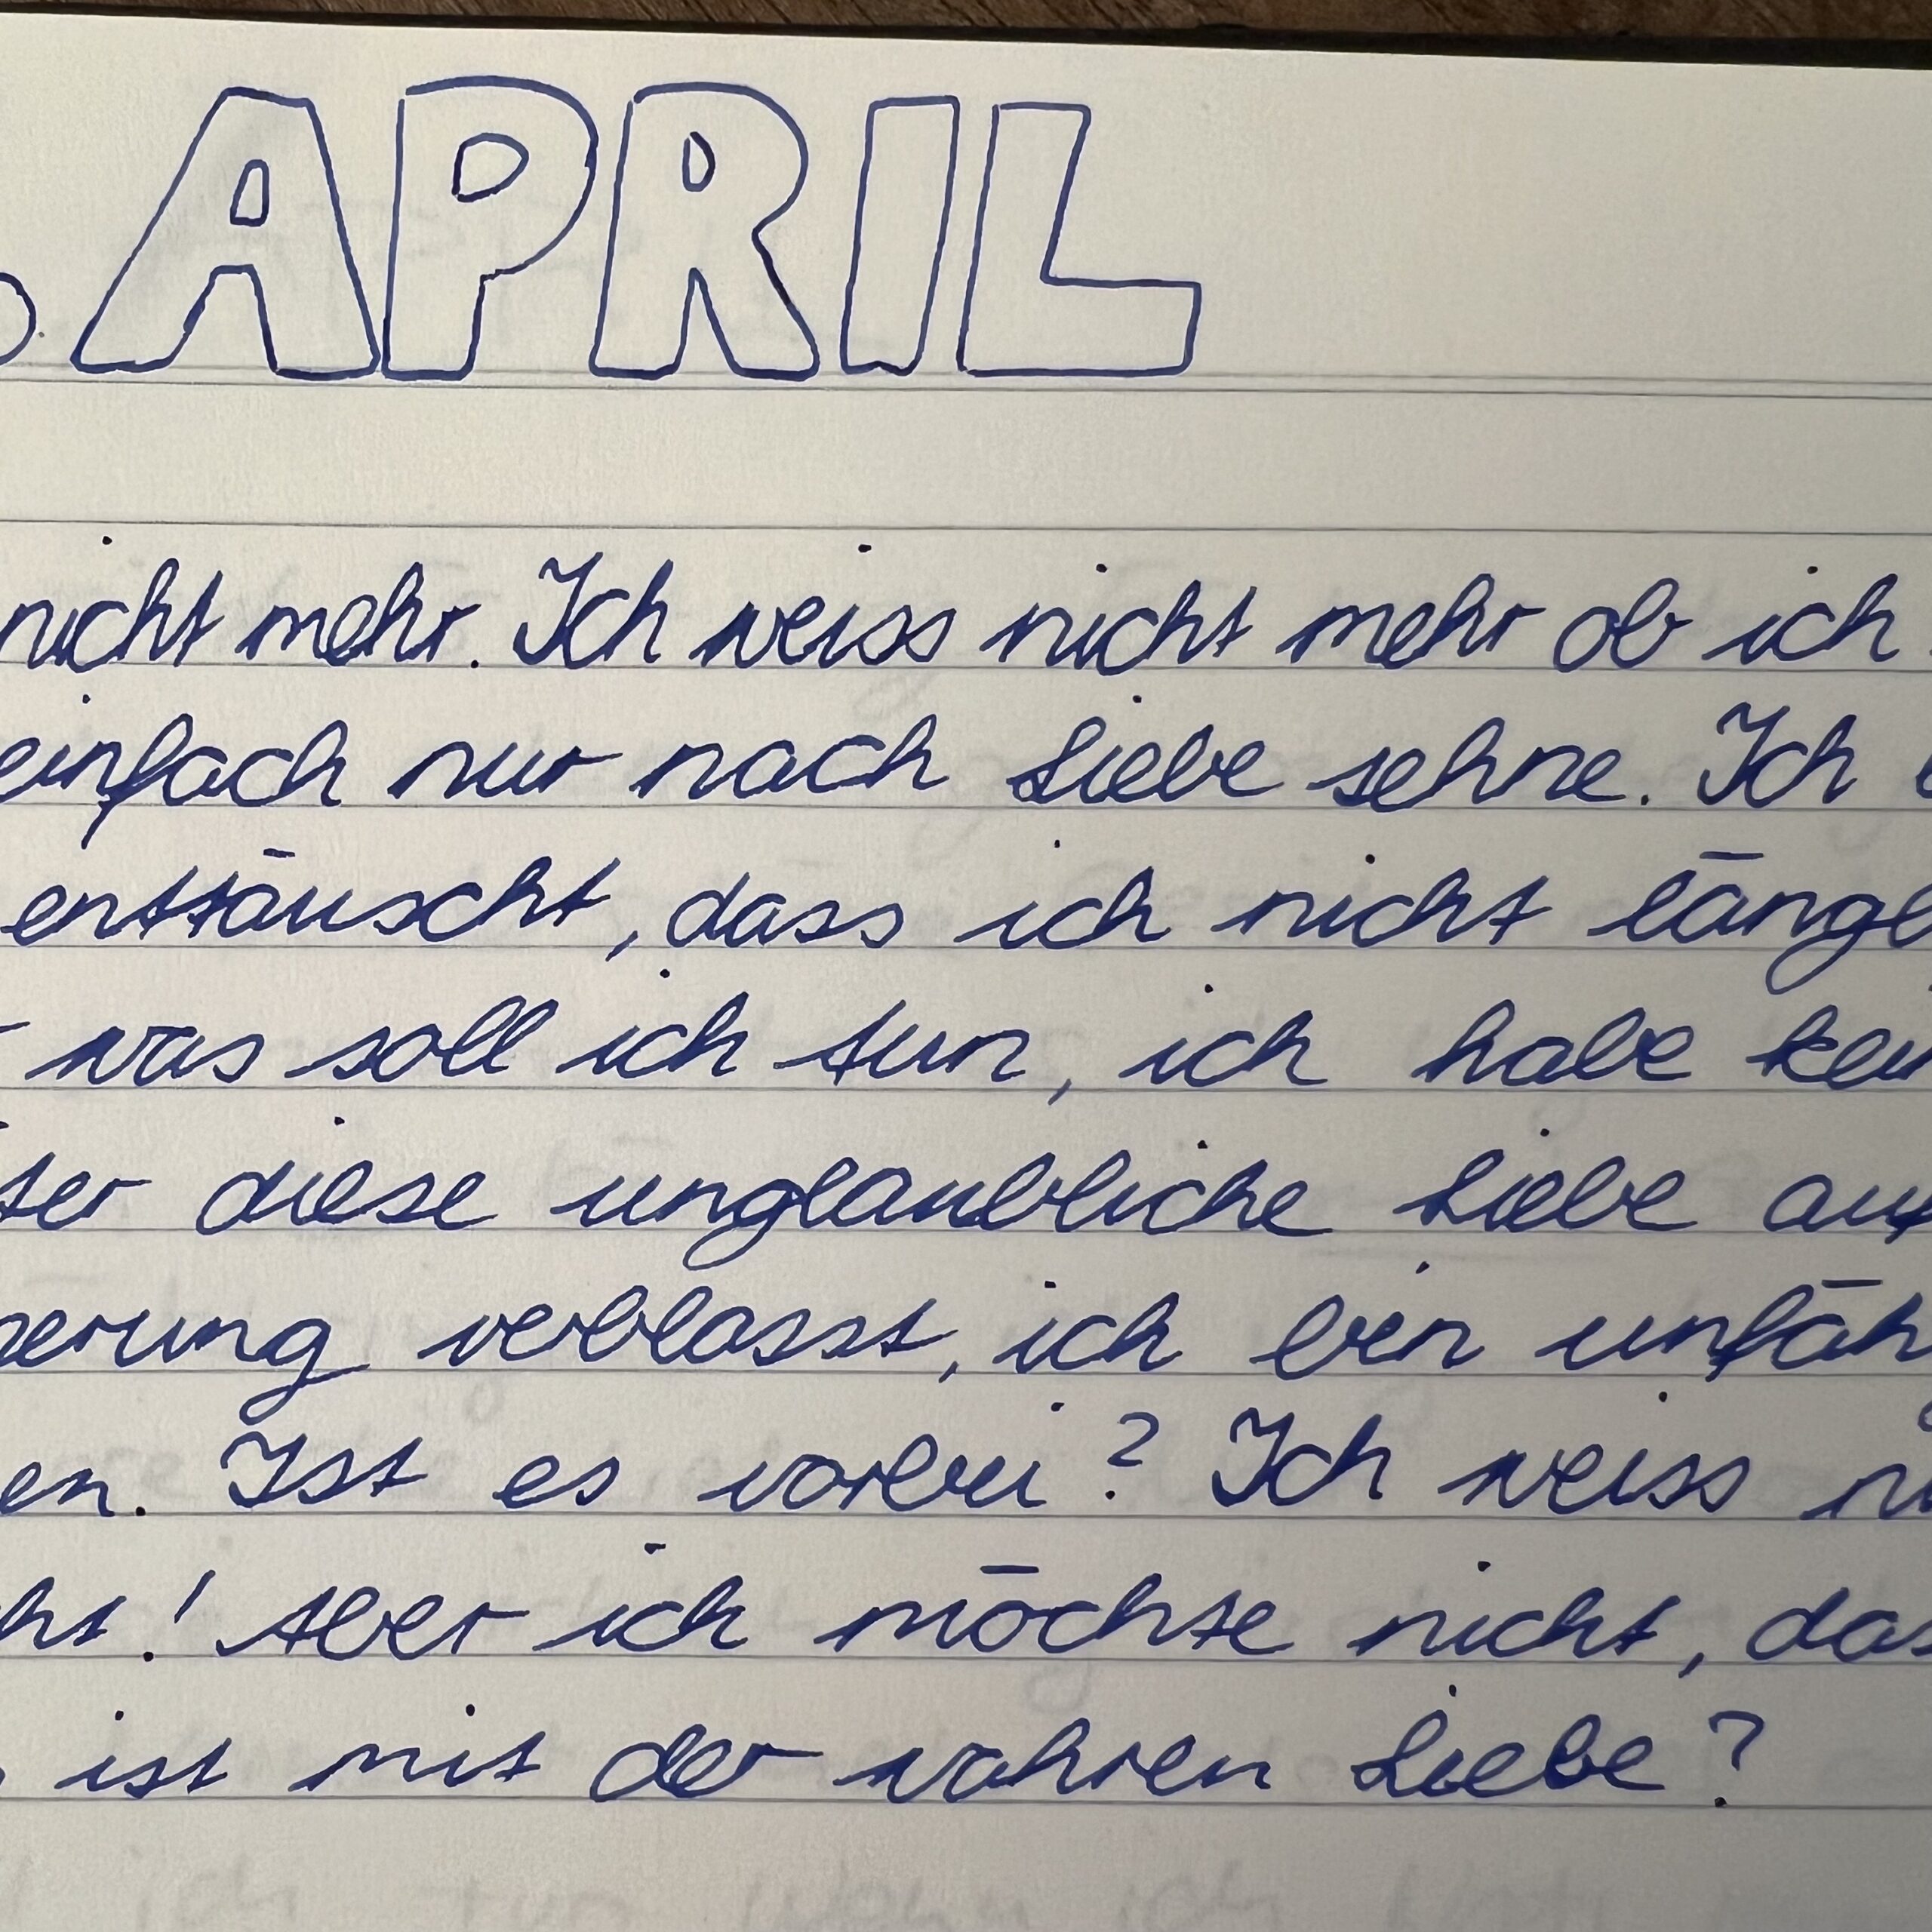 . APRIL
nicht mehr. Ich weiss nicht mehr ob ich
einfach nur nach Liebe sehne. Ich
enttäuscht, dass ich nicht länge
was soll ich tun, ich habe kei
ter diese unglaubliche Liebe auf
nerung verblasst, ich bin unfäh
en. Ist es vorbei? Ich weiss ni
cht! Aber ich möchte nicht, das
ist mit der wahren Liebe?